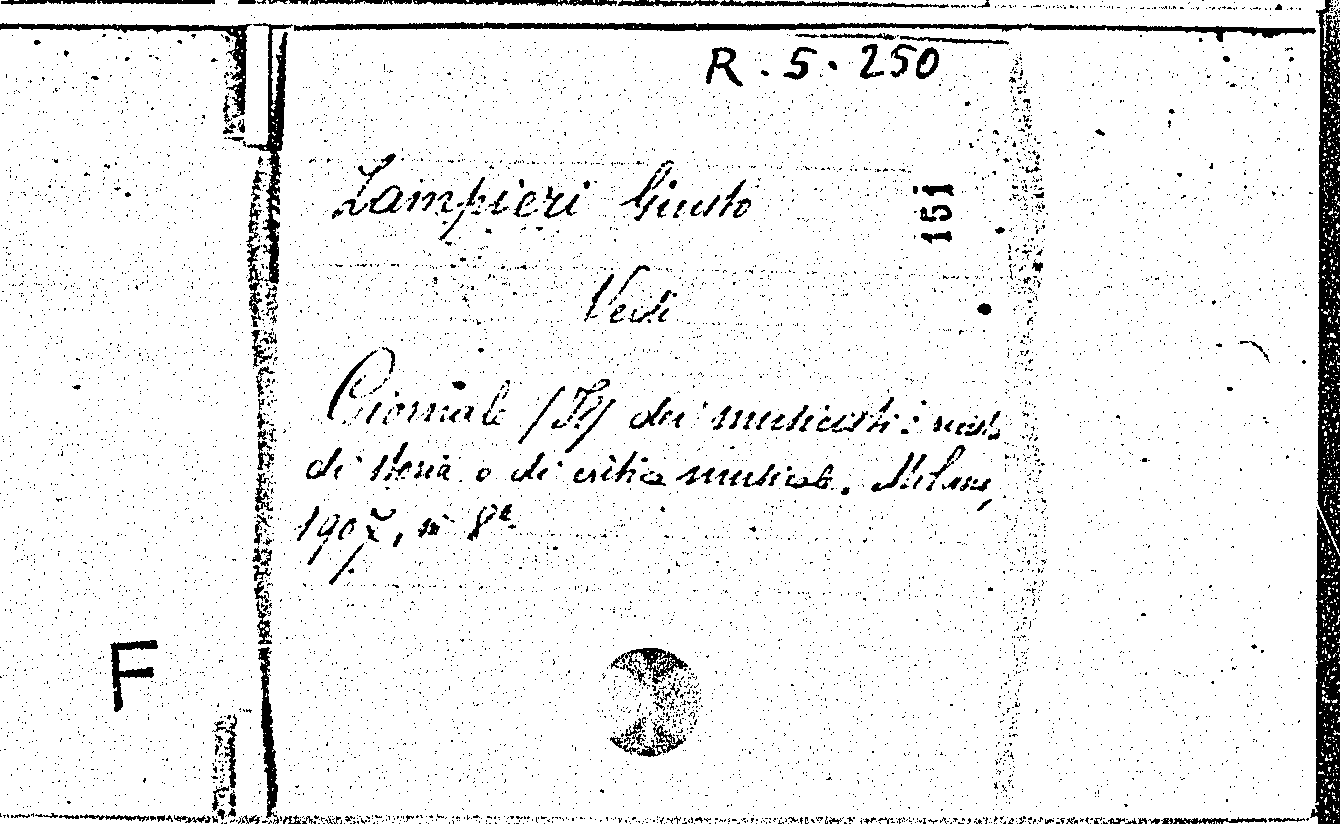 R. 5. 250
Zampieri Giusto
151
Vedi
Giornale (Il) dei musicisti: rivista
di storia e di critica musicale. Milano,
1907, in 8º
F